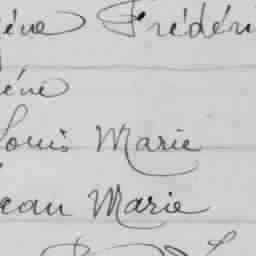 ène Frédéri
ène
Louis Marie
Jean Marie